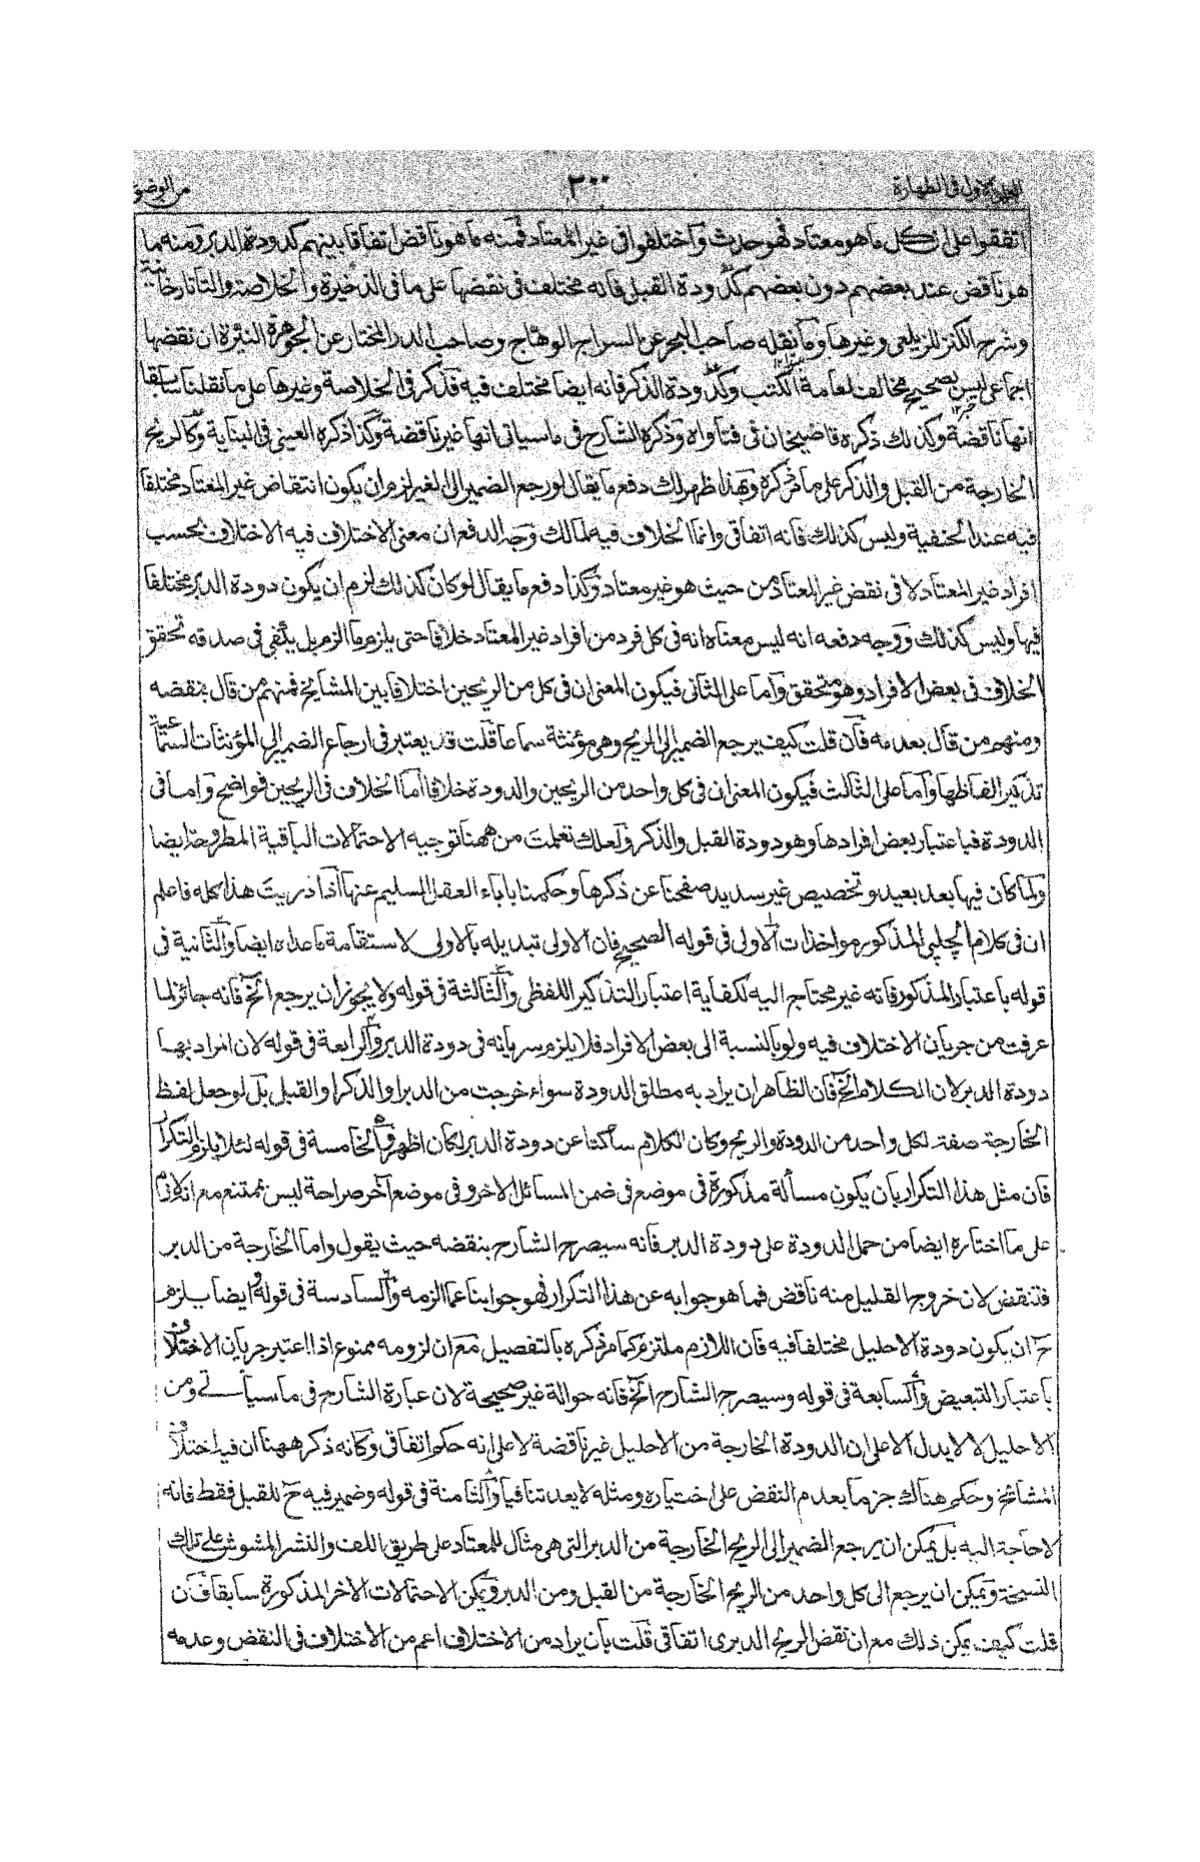 المجلد الاول فى الطهارة ٣٠٠ من الوضو
اتفقوا على ان كل ما هو معتاد فهو حدث واختلفوا فى غير المعتاد فمنه ما هو ناقض اتفاقا بينهم كدودة الدبر ومنه ما
هو ناقض عند بعضهم دون بعضهم كدودة القبل فانه مختلف فى نقضها على ما فى الذخيرة والخلاصة والتاتارخانية
وشرح الكنز للزيلعى وغيرها وما نقله صاحب البحر عن السراج الوهاج وصاحب الدر المختار عن الجوهرة النيرة ان نقضها
اجماعى ليس بصحيح مخالف لعامة الكتب وكدودة الذكر فانه ايضا مختلف فيه فذكر فى الخلاصة وغيرها على ما نقلنا سابقا
انها ناقضة وكذلك ذكره قاضيخان فى فتاواه وذكره الشارح فى ما سياتى انها غير ناقضة وكذا ذكره العينى فى البناية وكالريح
الخارجة من القبل والذكر على ما مر ذكره وبهذا ظهر لك دفع ما يقال لو رجع الضمير الى الغير لزم ان يكون انتقاض غير المعتاد مختلفا
فيه عند الحنفية وليس كذلك فانه اتفاقى وانما الخلاف فيه لمالك وجه الدفع ان معنى الاختلاف فيه الاختلاف بحسب
افراد غير المعتاد لا فى نقض غير المعتاد من حيث هو غير معتاد وكذا دفع ما يقال لو كان كذلك لزم ان يكون دودة الدبر مختلفا
فيها وليس كذلك ووجه دفعه انه ليس معناه انه فى كل فرد من افراد غير المعتاد خلافا حتى يلزم ما الزم بل يكفى فى صدقه تحقق
الخلاف فى بعض الافراد وهو متحقق واما على الثانى فيكون المعنى ان فى كل من الريحين اختلافا بين المشايخ فمنهم من قال بنقضه
ومنهم من قال بعدمه فان قلت كيف يرجع الضمير الى الريح وهى مؤنثة سماعا قلت قد يعتبر فى ارجاع الضمير الى المؤنثات السماعية
تذكير الفاظها واما على الثالث فيكون المعنى ان فى كل واحد من الريحين والدودة خلافا اما الخلاف فى الريحين فواضح واما فى
الدودة فباعتبار بعض افرادها وهو دودة القبل والذكر ولعلك تعلمت من ههنا توجيه الاحتمالات الباقية المطروحة ايضا
ولما كان فيها بعد بعيد وتخصيص غير سديد صفحنا عن ذكرها وحكمنا باباء العقل السليم عنها اذا دريت هذا كله فاعلم
ان فى كلام الچلپى المذكور مواخذات الاولى فى قوله الصحيح فان الاولى تبديله بالاولى لاستقامة ما عداه ايضا والثانية فى
قوله باعتبار المذكور فانه غير محتاج اليه لكفاية اعتبار التذكير اللفظى والثالثة فى قوله ولا يجوز ان يرجع الخ فانه جائز لما
عرفت من جريان الاختلاف فيه ولو بالنسبة الى بعض الافراد فلا يلزم سريانه فى دودة الدبر والرابعة فى قوله لان المراد بها
دودة الدبر لان الكلام الخ فان الظاهر ان يراد به مطلق الدودة سواء خرجت من الدبر او الذكر او القبل بل لو جعل لفظ
الخارجة صفة لكل واحد من الدودة والريح وكان الكلام ساكتا عن دودة الدبر لكان اظهر والخامسة فى قوله لئلا يلزم التكرار
فان مثل هذا التكرار بان يكون مسألة مذكورة فى موضع فى ضمن المسائل الاخر وفى موضع آخر صراحة ليس بممتنع مع انه لازم
على ما اختاره ايضا من حمل الدودة على دودة الدبر فانه سيصرح الشارح بنقضه حيث يقول واما الخارجة من الدبر
فتنقض لان خروج القليل منه ناقض فما هو جوابه عن هذا التكرار فهو جوابنا عما الزمه والسادسة فى قوله وايضا يلزم
ح ان يكون دودة الاحليل مختلفا فيه فان اللازم ملتزم كما مر ذكره بالتفصيل مع ان لزومه ممنوع اذا اعتبر جريان الاختلاف
باعتبار التبعيض والسابعة فى قوله وسيصرح الشارح الخ فانه حوالة غير صحيحة لان عبارة الشارح فى ما سياتى ومن
الاحليل لا لا يدل الا على ان الدودة الخارجة من الاحليل غير ناقضة لا على انه حكم اتفاقى وكانه ذكر ههنا ان فيه اختلاف
المشائخ وحكم هناك جزما بعدم النقض على اختياره ومثله لا يعد تنافيا والثامنة فى قوله وضمير فيه ح للقبل فقط فانه
لا حاجة اليه بل يمكن ان يرجع الضمير الى الريح الخارجة من الدبر التى هى مثال للمعتاد على طريق اللف والنشر المشوش على تلك
النسخة ويمكن ان يرجع الى كل واحد من الريح الخارجة من القبل ومن الدبر ويمكن الاحتمالات الاخر المذكورة سابقا فان
قلت كيف يمكن ذلك مع ان نقض الريح الدبرى اتفاقى قلت بان يراد من الاختلاف اعم من الاختلاف فى النقض وعدمه